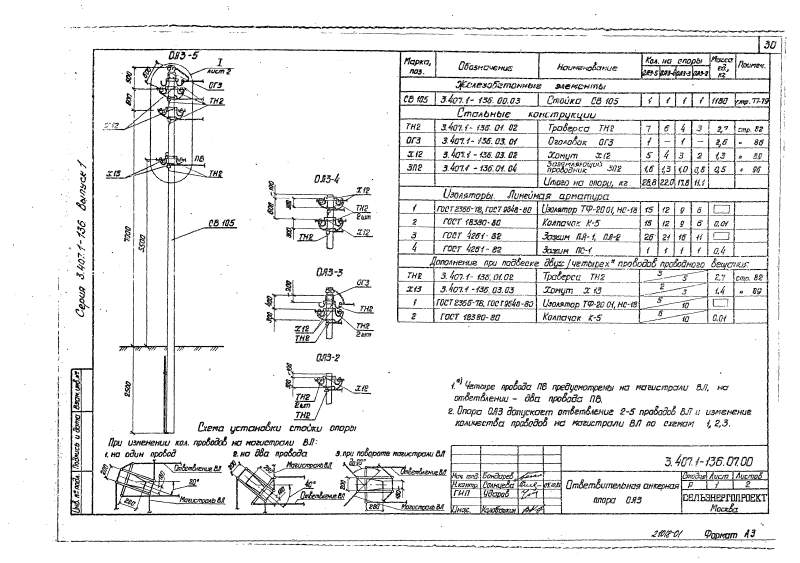 30
Серия 3.407.1-136 Выпуск 1
ОЛЗ-5
I
лист 2
ОГ3
ТН2
Х12
Х13
ПВ
ТН2
СВ 105
7000
5500
2500
ОЛЗ-4
Х12
ТН2
2шт
ТН2
Х12
ОЛЗ-3
ОГ3
Х12
ТН2
ТН2
2шт
ОЛЗ-2
Х12
ТН2
2шт
ТН2
Марка, поз. Обозначение Наименование Кол. на опоры Масса ед., кг Примеч.
ОЛЗ-5 ОЛЗ-4 ОЛЗ-3 ОЛЗ-2
Железобетонные элементы
СВ 105 3.407.1-136.00.03 Стойка СВ 105 1 1 1 1 1180 стр. 77-79
Стальные конструкции
ТН2 3.407.1-136.01.02 Траверса ТН2 7 6 4 3 2,7 стр. 82
ОГ3 3.407.1-136.03.01 Оголовок ОГ3 1 - 1 - 2,6 " 86
Х12 3.407.1-136.03.02 Хомут Х12 5 4 3 2 1,3 " 89
ЗП2 3.407.1-136.01.04 Заземляющий проводник ЗП2 1,6 1,3 1,0 0,8 0,5 "
Итого на опору, кг 28,8 22,0 17,8 11,1
Изоляторы. Линейная арматура
1 ГОСТ 2366-78, ГОСТ 9648-80 Изолятор ТФ-20 01, НС-18 15 12 9 6
2 ГОСТ 18380-80 Колпачок К-5 15 12 9 6 0,01
3 ГОСТ 4261-82 Зажим ПА-1, ПА-2 26 21 16 11
4 ГОСТ 4261-82 Зажим ПС-1 1 1 1 1 0,4
Дополнение при подвеске двух/четырех* проводов проводного вещания:
ТН2 3.407.1-136.01.02 Траверса ТН2 3 3 2,7 стр. 82
Х13 3.407.1-136.03.03 Хомут Х13 2 3 1,4 " 89
1 ГОСТ 2366-78, ГОСТ 9648-80 Изолятор ТФ 20 01, НС-18 5 10
2 ГОСТ 18380-80 Колпачок К-5 5 10 0,01
1.*) Четыре провода ПВ предусмотрены на магистрали ВЛ, на
ответвлении - два провода ПВ.
2. Опора ОЛЗ допускает ответвление 2-5 проводов ВЛ и изменение
количества проводов на магистрали ВЛ по схемам 1, 2, 3.
Схема установки стойки опоры
При изменении кол. проводов на магистрали ВЛ:
1. на один провод
2. на два провода
3. при повороте магистрали ВЛ
Ответвление ВЛ
20°
Магистраль ВЛ
Магистраль ВЛ
40°
Ответвление ВЛ
Ответвление ВЛ
Магистраль ВЛ
200
280
Инв. № подл. Подпись и дата Взам. инв. №
3.407.1-136.07.00
Нач. отд. Бондарев
Н. контр. Солнцева
ГИП Ударов
Инж.
Ответвительная анкерная
опора ОЛЗ
Стадия Лист Листов
Р 1 2
СЕЛЬЭНЕРГОПРОЕКТ
Москва
21018-01
Формат А3